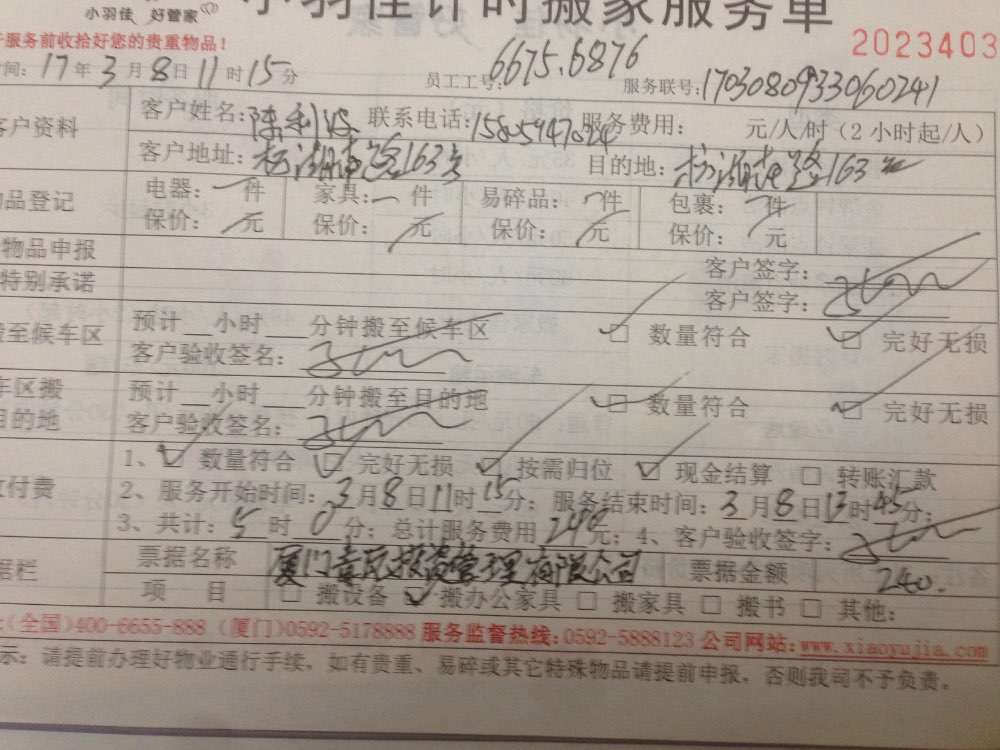 小羽佳 好管家
小羽佳计时搬家服务单
服务前收拾好您的贵重物品！
2023403
时间：17年3月8日11时15分 员工工号：6675.6876 服务联号：1703080933060241
客户资料 客户姓名： 联系电话： 服务费用： 元/人/时（2小时起/人）
客户地址： 163号 目的地： 163号
物品登记 电器： 一件 家具： 一件 易碎品： 件 包裹： 件
保价： 元 保价： 元 保价： 元 保价： 元
物品申报 客户签字：
特别承诺 客户签字：
搬至候车区 预计__小时___分钟搬至候车区 ☑ 数量符合 ☑ 完好无损
客户验收签名：
车区搬 预计__小时___分钟搬至目的地 ☑ 数量符合 ☑ 完好无损
目的地 客户验收签名：
1、☑ 数量符合 ☑ 完好无损 ☑ 按需归位 ☑ 现金结算 □ 转账汇款
付费 2、服务开始时间：3月8日11时15分；服务结束时间：3月8日13时45分；
3、共计：5时0分；总计服务费用240元；4、客户验收签字：
据栏 票据名称 厦门 投资管理有限公司 票据金额 240.
项 目 □ 搬设备 ☑ 搬办公家具 □ 搬家具 □ 搬书 □ 其他：
（全国）400-6655-888（厦门）0592-5178888 服务监督热线：0592-5888123 公司网站：www.xiaoyujia.com
示：请提前办理好物业通行手续，如有贵重、易碎或其它特殊物品请提前申报，否则我司不予负责。